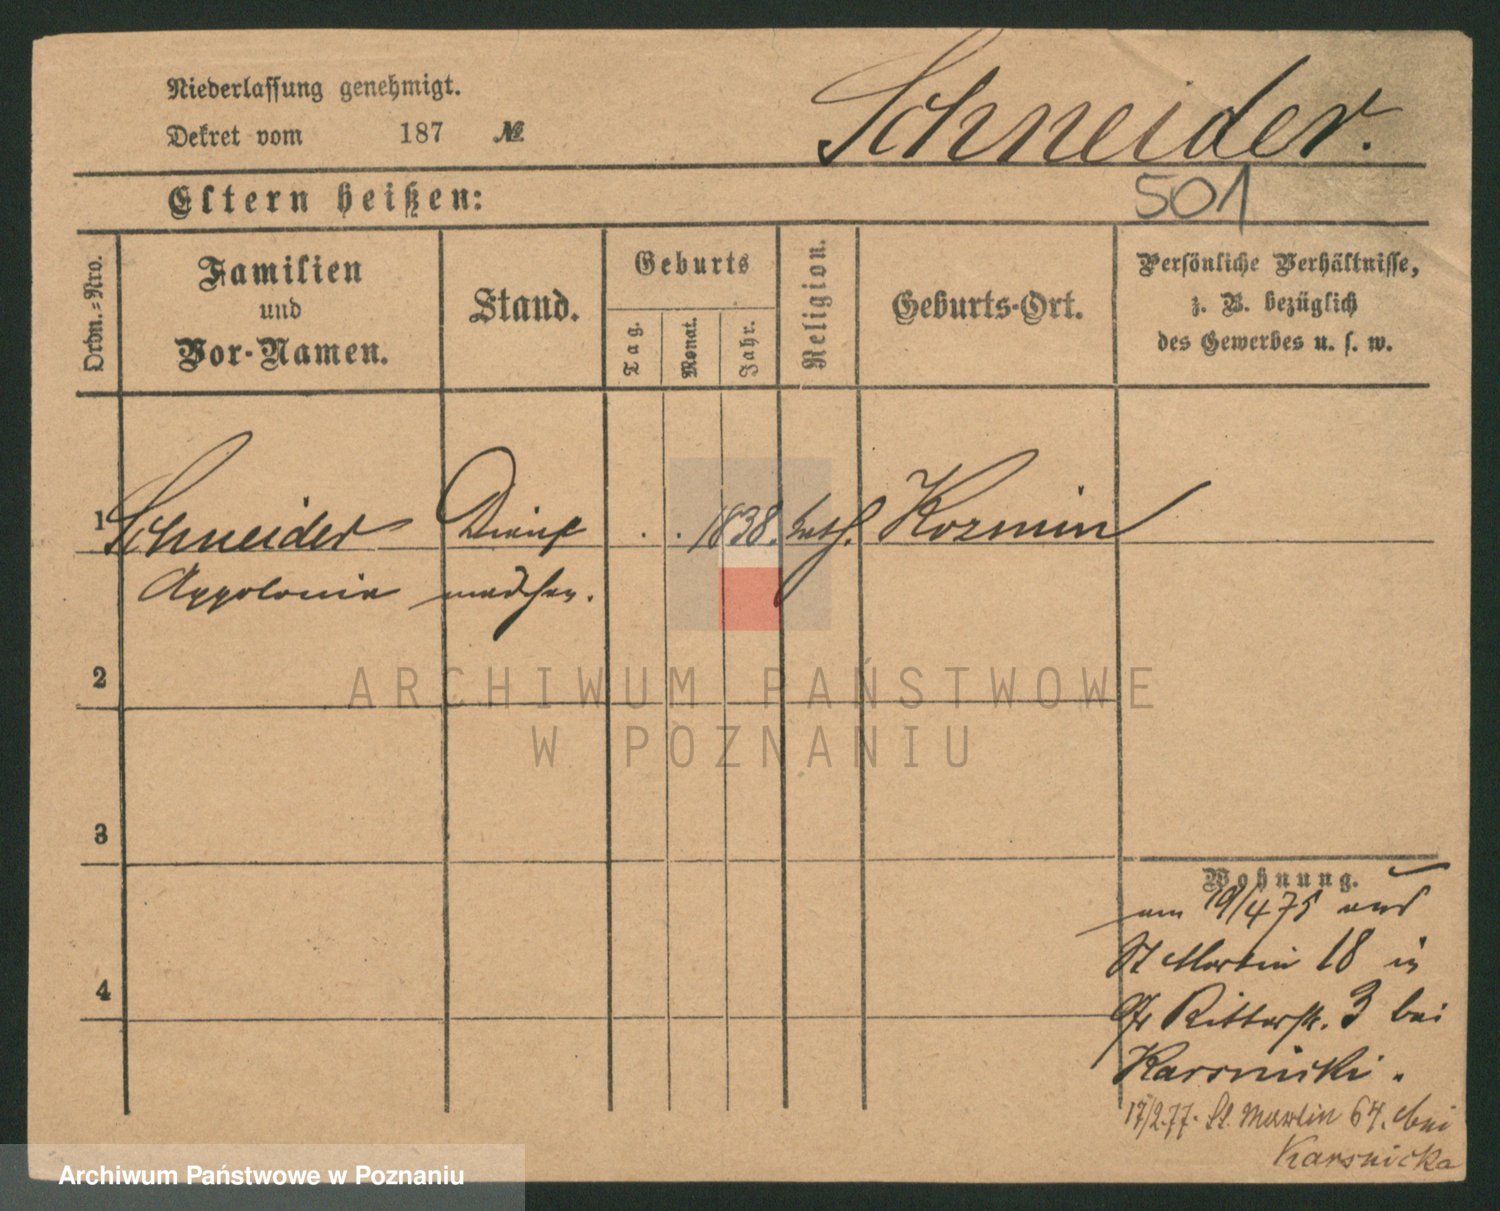 Niederlassung genehmigt.
Dekret vom 187 №
Schneider.
501
Eltern heißen:
Ordn.=Nro.
Familien
und
Vor-Namen.
Stand.
Geburts
Tag.
Monat.
Jahr.
Religion.
Geburts-Ort.
Persönliche Verhältnisse,
z. B. bezüglich
des Gewerbes u. s. w.
1 Schneider Dienst . . 1838. kath. Kozmin
Appolonia mädchen.
2
3
4
Wohnung.
am 19/4 75 aus
St Martin 18 in
Gr Ritterstr. 3 bei
Karsnicki.
17/2.77. St. Martin 64. bei
Karsnicka
ARCHIWUM PAŃSTWOWE
W POZNANIU
Archiwum Państwowe w Poznaniu